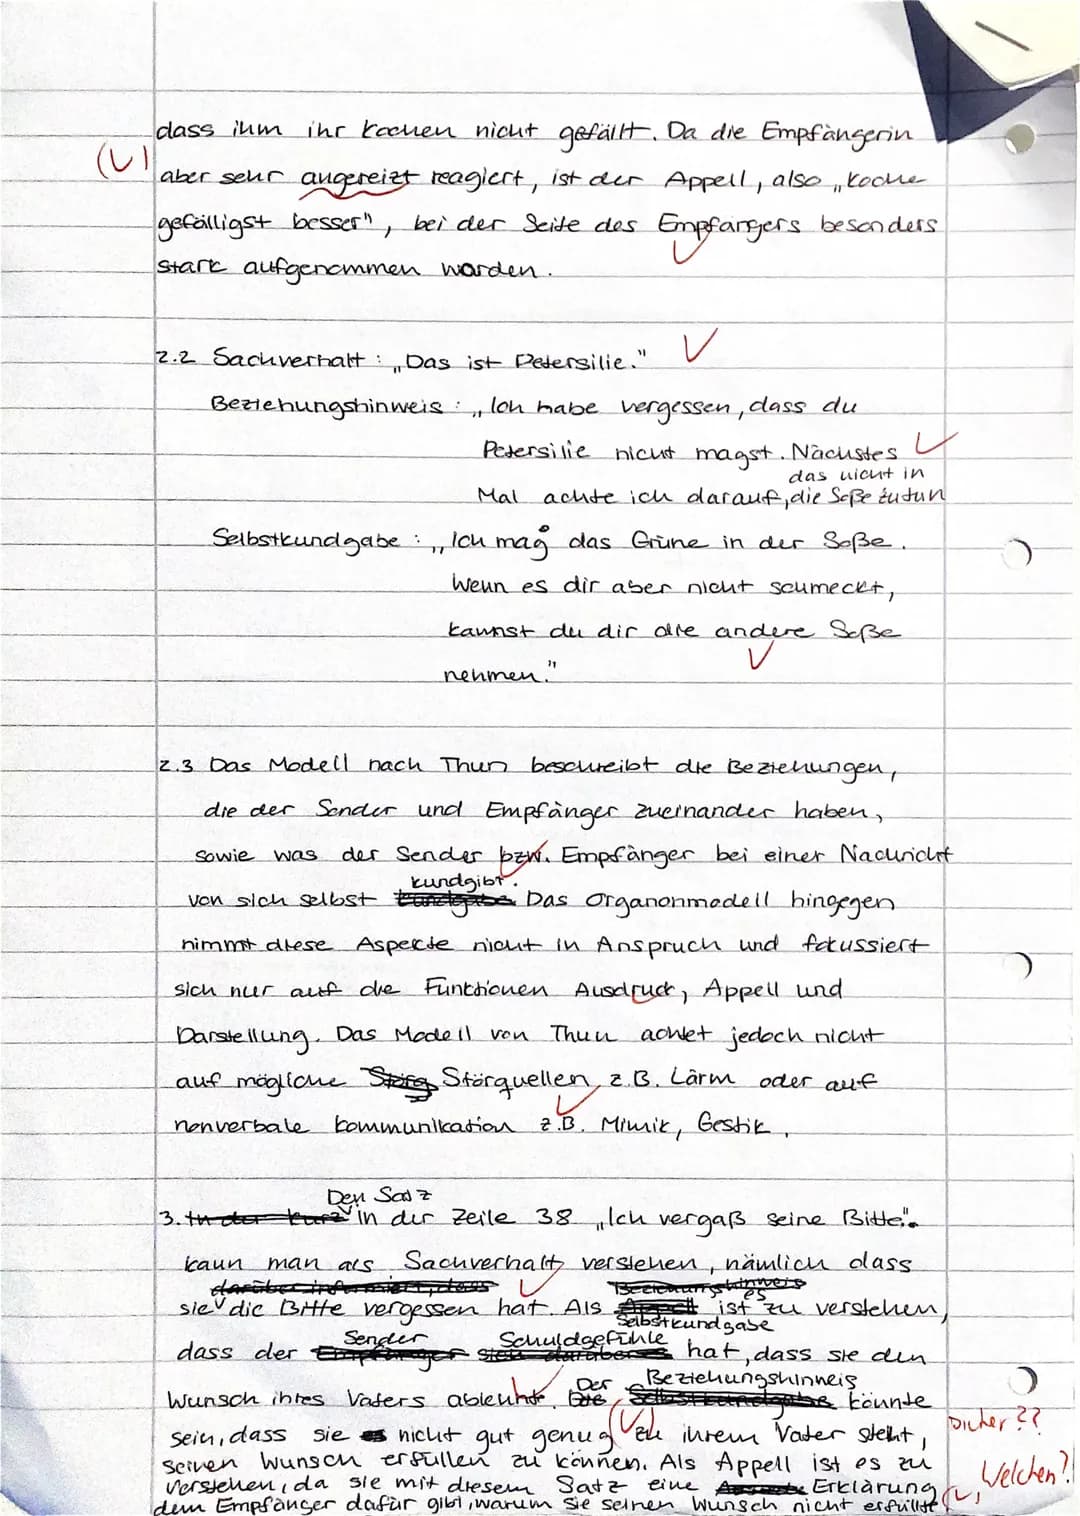 dass ihm ihr kochen nicht gefällt. Da die Empfängerin
aber sehr angereizt reagiert, ist der Appell, also „koche
gefälligst besser", bei der Seite des Empfängers besonders
stark aufgenommen worden.
2.2 Sachverhalt: „Das ist Petersilie."
Beziehungshinweis: „Ich habe vergessen, dass du
Petersilie nicht magst. Nächstes
das nicht in
Mal achte ich darauf, die Soße zutun
Selbstkundgabe: „Ich mag das Grüne in der Soße.
Wenn es dir aber nicht schmeckt,
kannst du dir die andere Soße
nehmen."
2.3 Das Modell nach Thun beschreibt die Beziehungen,
die der Sender und Empfänger zueinander haben,
sowie was der Sender bzw. Empfänger bei einer Nachricht
kundgibt.
von sich selbst kundgabe Das Organonmodell hingegen
nimmt diese Aspekte nicht in Anspruch und fokussiert
sich nur auf die Funktionen Ausdruck, Appell und
Darstellung. Das Modell von Thun achtet jedoch nicht
auf mögliche Störquellen, z.B. Lärm oder auf
nonverbale Kommunikation z.B. Mimik, Gestik.
Den Satz
3. In der kurz in der Zeile 38 „Ich vergaß seine Bitte".
kann man als Sachverhalt verstehen, nämlich dass
darüber informiert, dass Beziehungshinweis
es
sie die Bitte vergessen hat. Als Appell ist zu verstehen,
Selbstkundgabe
Sender Schuldgefühle
dass der Empfänger sich darüber hat, dass sie den
Der Beziehungshinweis
Wunsch ihres Vaters ablehnt. Die Selbstkundgabe könnte
sein, dass sie es nicht gut genug zu ihrem Vater steht,
Sicher??
seinen Wunsch erfüllen zu können. Als Appell ist es zu
Welchen?!
verstehen, da sie mit diesem Satz eine Erklärung
dem Empfänger dafür gibt, warum sie seinen Wunsch nicht erfüllte.